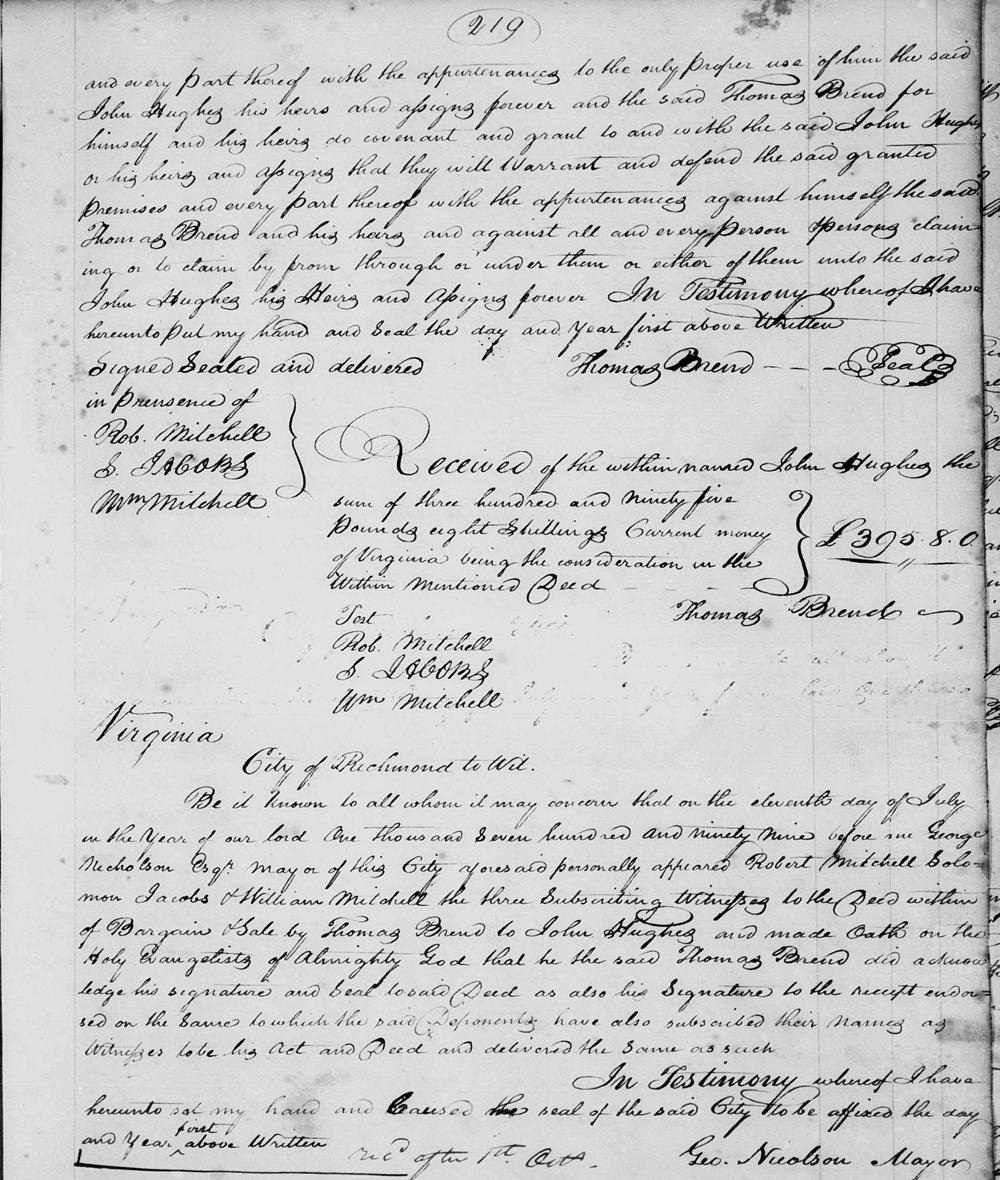 219
and every part thereof with the appurtenances to the only proper use of him the said
John Hughes his heirs and assigns forever and the said Thomas Brend for
himself and his heirs do covenant and grant to and with the said John Hughes
or his heirs and assigns that they will Warrant and defend the said granted
premises and every part thereof with the appurtenances against himself the said
Thomas Brend and his heirs and against all and every person & persons claim=
ing or to claim by from through or under them or either of them unto the said
John Hughes his Heirs and Assigns forever In Testimony whereof I have
hereunto put my hand and Seal the day and Year first above Written
Signed Sealed and delivered Thomas Brend - - - Seal
in Prensence of
Rob. Mitchell
S. JACOBS
Wm Mitchell
Received of the within named John Hughes the
sum of three hundred and Ninety five
pounds eight Shillings Current money
of Virginia being the consideration in the
Within Mentioned Deed
£395.8.0
Thomas Brend
Test
Rob. Mitchell
S. JACOBS
Wm Mitchell
Virginia
City of Richmond to Wit.
Be it Known to all whom it may concern that on the eleventh day of July
in the Year of our lord One thousand Seven hundred and ninety Nine before me George
Nicholson Esqr. Mayor of this City yoresaid personally appeared Robert Mitchell Solo=
mon Jacobs & William Mitchell the three Subscribing Witnesses to the Deed within
of Bargain & Sale by Thomas Brend to John Hughes and made Oath on the
Holy Evangelists of Almighty God that he the said Thomas Brend did acknow
ledge his signature and Seal to said Deed as also his Signature to the receipt endor=
sed on the Same to which the said Deponents have also subscribed their names as
Witnesses to be his Act and Deed and delivered the Same as such
In Testimony whereof I have
hereunto set my hand and Caused the seal of the said City to be affixed the day
and Year first above Written
Rec'd after 1st Octo.
Geo. Nicolson Mayor